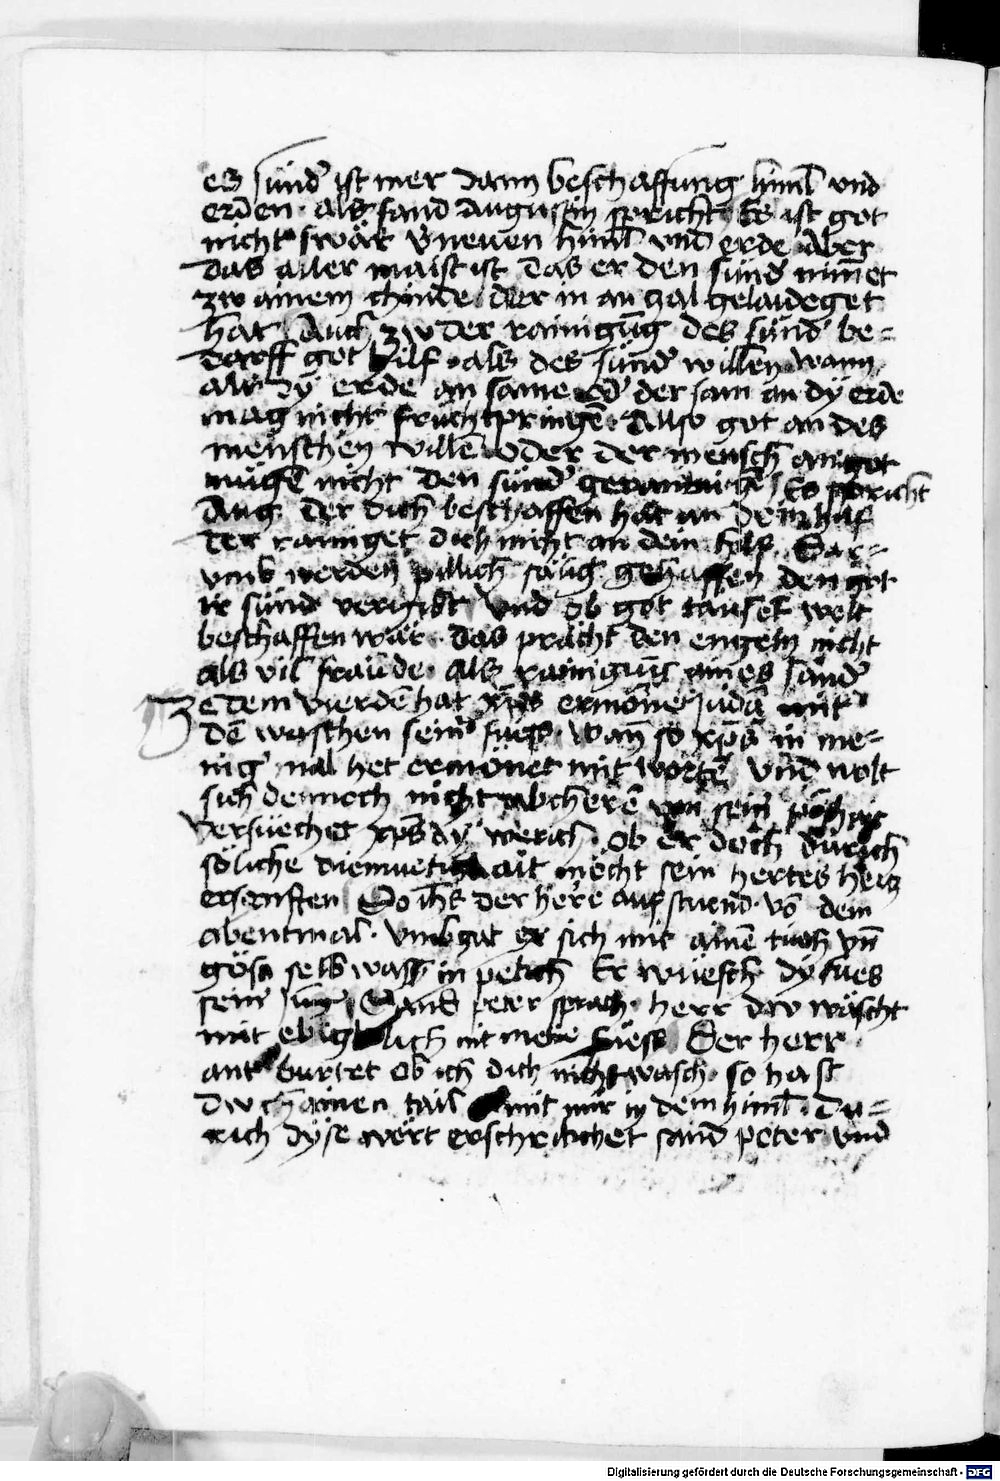 es sünd̾ ist mer dann beschaffung himl̄ vnd
erden · als sand Augustin spricht Es ist got
nicht swär v̾neuen himl̄ vnd erde Aber
das aller maist ist das er den sünd̾ nimet
zw ainem chinde der in an zal gelaideget
hat Auch zw der rainigūg des sünd̾ be=
darff got hilf · als des sünd̾ willen wann
als dy erde an same od̾ der sam an dy erde
mag nicht frucht pringē · Also got an des
menschen willē oder der mensch an got
mügē nicht den sünd̾ Es spricht
Aug der dich beschaffen hat an dein hilf
der rainiget dich nicht an dein hilf Dar=
vmb werden pillich sälig gehaissen den got
ir sünd vergibt vnd ob got tausent welt
beschaffen wär · das prächt den engeln nicht
als vil fräude · als rainigung aines sünd̾
Ze dem vierdē hat xp̄s ermōnet judā mit
dē waschen sein̾ fuess · wan̄ so xp̄s in me=
nig̾ mal het ermōnet mit wortē vnd wolt
sich dennoch nicht abcherē von sein̾ poshait
versuechet xp̄s dy werch · ob er doch durich
söliche diemuetichait möcht sein hertes hercz
ersenften Do ih̄s der herre auf stuend · vō dem
abentmal · vmbgat er sich mit ainē tuch vn̄
göss selb wass̾ in pekch Er wuesch dy fues
sein̾ jung̾ Sand peter sprach · herr dw wäscht
mir ebigklich nit meine füess Der herr
ant burtet ob ich dich nicht wasch · so hast
dw chainen tail mit mir in dem himl̄ · Du=
rich dyse wort erschrikchet sand peter vnd
Digitalisierung gefördert durch die Deutsche Forschungsgemeinschaft - DFG